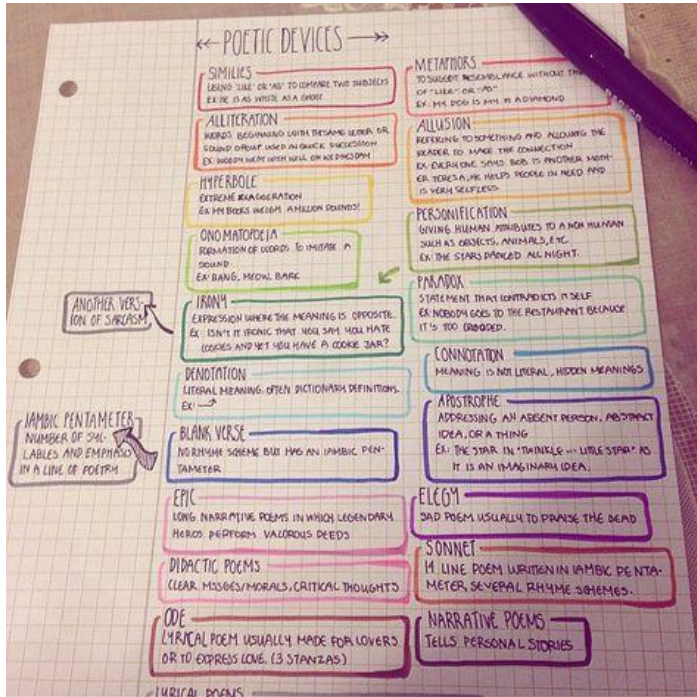 POETIC DEVICES
SIMILIES
USING "LIKE" OR "AS" TO COMPARE TWO SUBJECTS
EX: HE IS AS WHITE AS A GHOST
ALLITERATION
WORDS BEGINNING WITH THE SAME LETTER OR
SOUND USED IN QUICK SUCCESSION
EX: WOODY WENT WITH WILL ON WEDNESDAY
HYPERBOLE
EXTREME EXAGGERATION
EX: MY BOOKS WEIGH A MILLION POUNDS!
ONOMATOPOEIA
FORMATION OF WORDS TO IMITATE A
SOUND
EX: BANG, MEOW, BARK
IRONY
EXPRESSION WHERE THE MEANING IS OPPOSITE.
EX: ISN'T IT IRONIC THAT YOU SAY YOU HATE
COOKIES AND YET YOU HAVE A COOKIE JAR?
ANOTHER VERS-
ION OF SARCASM
DENOTATION
LITERAL MEANING. OFTEN DICTIONARY DEFINITIONS.
EX:
BLANK VERSE
NO RHYME SCHEME BUT HAS AN IAMBIC PEN-
TAMETER
IAMBIC PENTAMETER
NUMBER OF SYL-
LABLES AND EMPHASIS
IN A LINE OF POETRY
EPIC
LONG NARRATIVE POEMS IN WHICH LEGENDARY
HEROS PERFORM VALOROUS DEEDS
DIDACTIC POEMS
CLEAR MSSGES/MORALS, CRITICAL THOUGHTS
ODE
LYRICAL POEM USUALLY MADE FOR LOVERS
OR TO EXPRESS LOVE. (3 STANZAS)
LYRICAL POEMS
METAPHORS
TO SUGGEST RESEMBLANCE WITHOUT THE
OF "LIKE" OR "AS"
EX: MY DOG IS MY A DIAMOND
ALLUSION
REFERING TO SOMETHING AND ALLOWING THE
READER TO MAKE THE CONNECTION
EX: EVERYONE SAYS BOB IS ANOTHER MOTH-
ER TERESA, HE HELPS PEOPLE IN NEED AND
IS VERY SELFLESS
PERSONIFICATION
GIVING HUMAN ATTRIBUTES TO A NON HUMAN
SUCH AS OBJECTS, ANIMALS, ETC.
EX: THE STARS DANCED ALL NIGHT.
PARADOX
STATEMENT THAT CONTRADICTS IT SELF
EX: NOBODY GOES TO THE RESTAURANT BECAUSE
IT'S TOO CROWDED.
CONNOTATION
MEANING IS NOT LITERAL, HIDDEN MEANINGS
APOSTROPHE
ADDRESSING AN ABSENT PERSON, ABSTRACT
IDEA, OR A THING
EX: THE STAR IN "TWINKLE ... LITTLE STAR" AS
IT IS AN IMAGINARY IDEA.
ELEGY
SAD POEM USUALLY TO PRAISE THE DEAD
SONNET
14 LINE POEM WRITTEN IN IAMBIC PENTA-
METER, SEVERAL RHYME SCHEMES.
NARRATIVE POEMS
TELLS PERSONAL STORIES